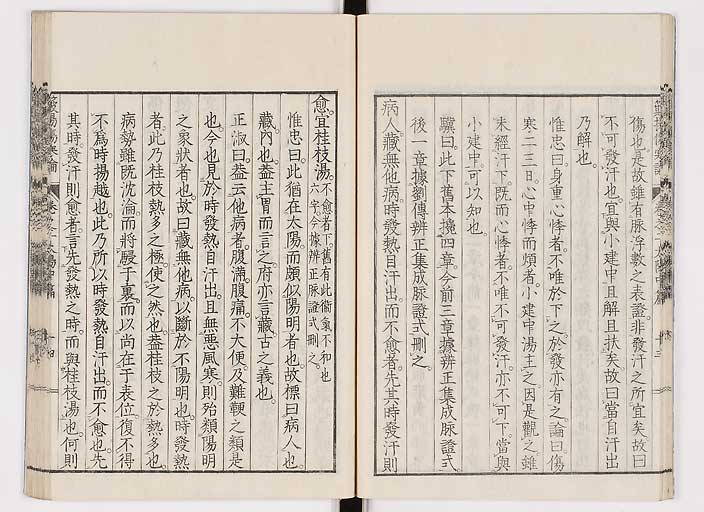 傷也是故雖有脉浮數之表證非發汗之所宜矣故曰
不可發汗也宜與小建中且解且扶矣故曰當自汗出
乃解也
惟忠曰身重心悸者不唯於下之於發亦有之論曰傷
寒二三日心中悸而煩者小建中湯主之因是觀之雖
未經汗下既而心悸者不唯不可發汗亦不可下當與
小建中可以知也
驥曰此下舊本攙四章今前三章據辨正集成脉證式
後一章據劉傳辨正集成脉證式刪之
病人藏無他病時發熱自汗出而不愈者先其時發汗則
愈宜桂枝湯不愈者下舊有此衞氣不和也
六字今據辨正脉證式刪之
惟忠曰此猶在太陽而頗似陽明者也故標曰病人也
藏內也蓋主胃而言之府亦言藏古之義也
正淑曰蓋云他病者腹滿腹痛不大便及難鞕之類是
也今也見於時發熱自汗出且無惡風寒則殆類陽明
之象狀者也故曰藏無他病以斷於不陽明也時發熱
者此乃桂枝熱多之極使之然也蓋桂枝之於熱多也
病勢雖既沈淪而將駸于裏而以尚在于表位復不得
不爲時揚越也此乃所以時發熱自汗出而不愈也先
其時發汗則愈者言先發熱之時而與桂枝湯也何則